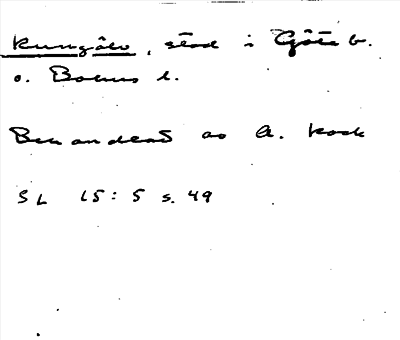 Kungälv, stad i Göteb.
o. Bohus l.
Behandlat av A. Kock
SL 15:5 s. 49